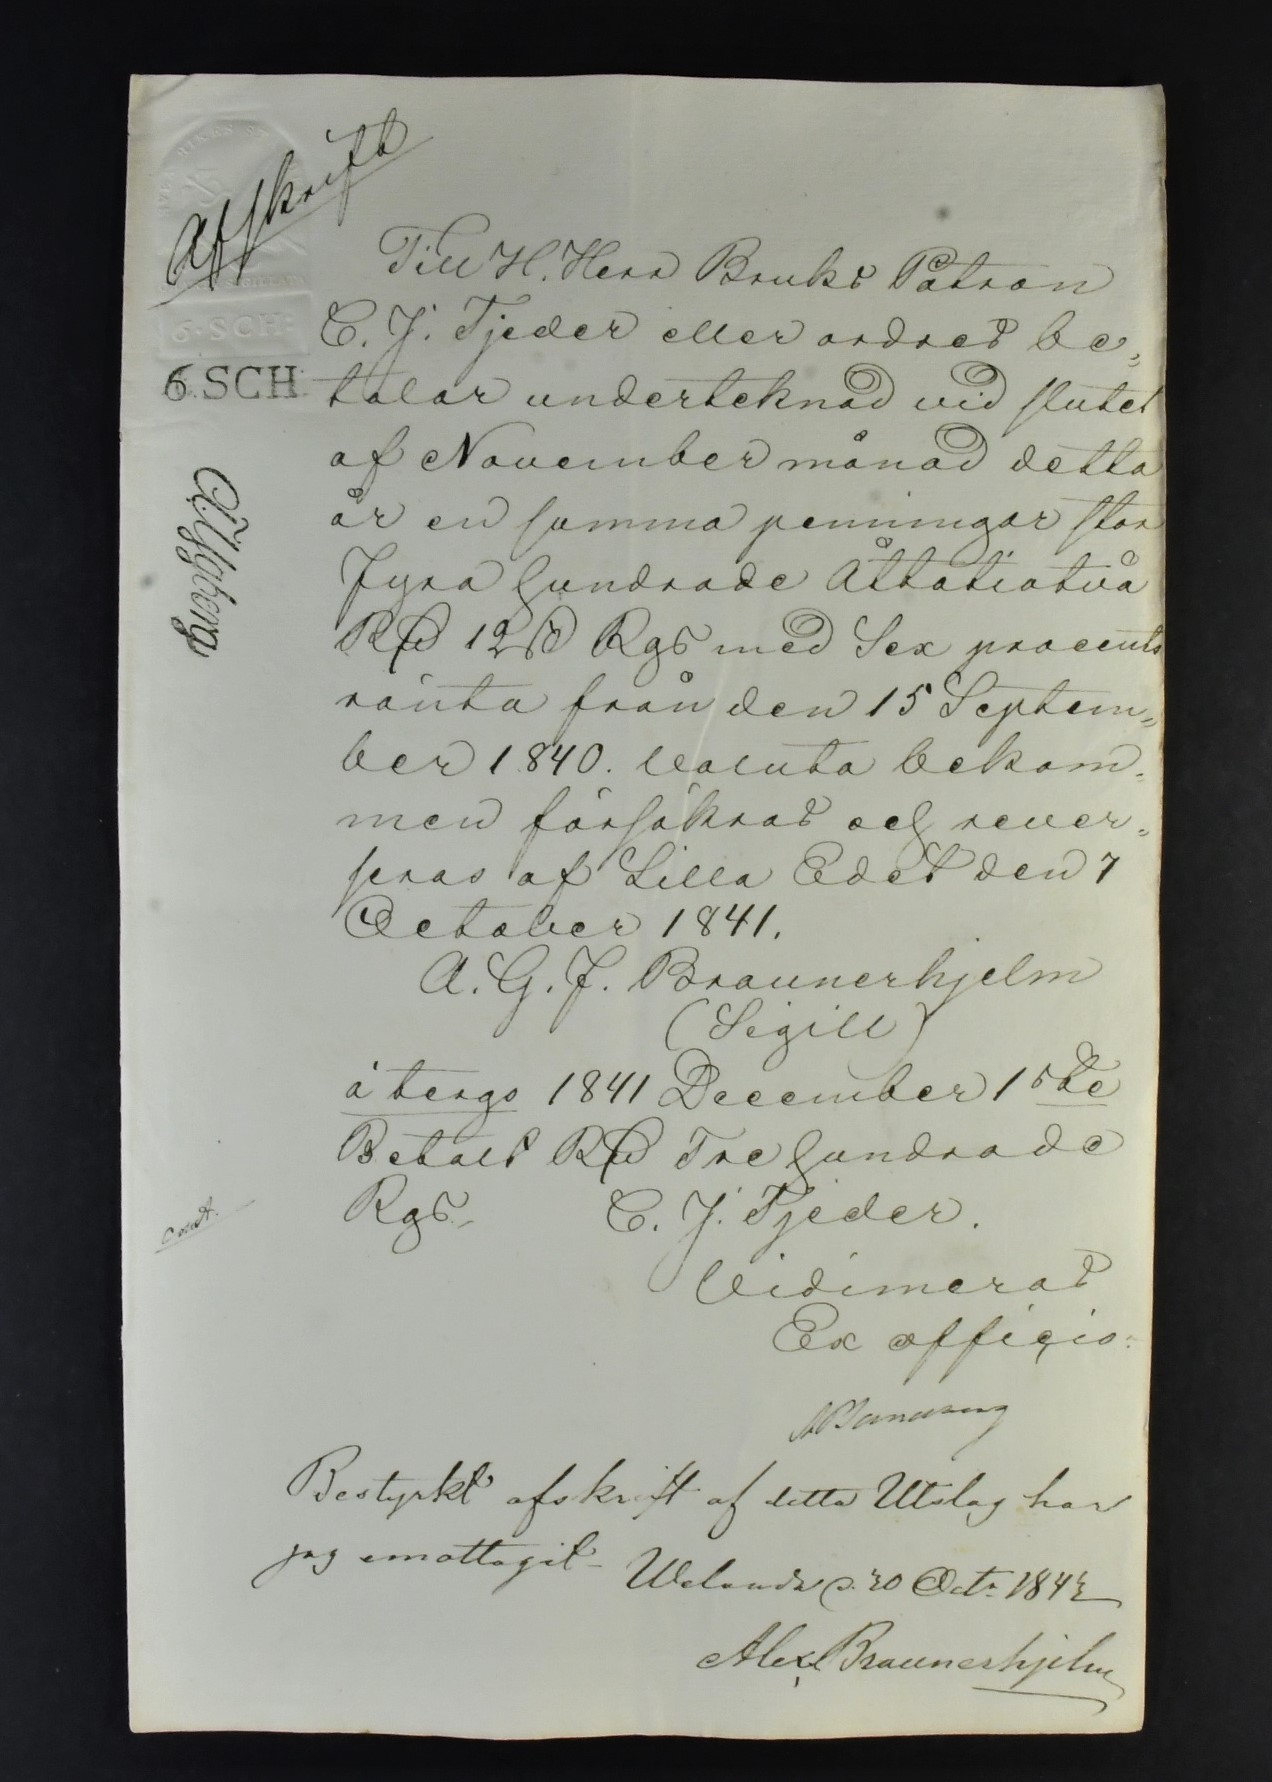 Afskrift
6·SCH:
6.SCH
Till H. Herr Bruks Patron
C. J. Tjeder eller ordres be„
talar undertecknad vid slutet
af November månad detta
år en summa penningar stor
Fyra hundrade Åttatiotvå
Rd 12 s Rgs med Sex procents
ränta från den 15 Septem„
ber 1840. Valuta bekom„
men försäkras och rever„
seras af Lilla Edet den 7
October 1841.
A. G. F. Braunerhjelm
(Sigill)
à tergo 1841 December 15de
Betalt Rd Tre hundrade
Rgs. C. J. Tjeder.
Vidimeras
Ex officio:
Bestyrkt afskrift af detta Utslag har
jag emottagit
d. 20 Octr 1842
Alex Braunerhjelm